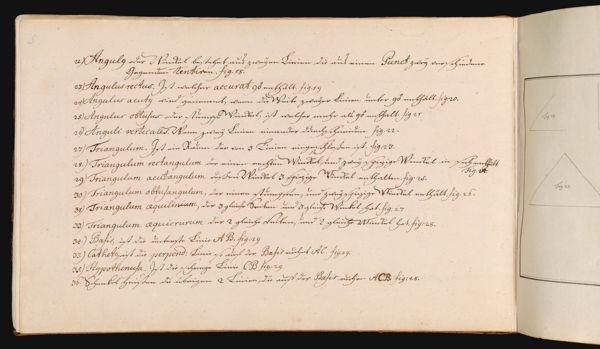 22) Angulg oder Winckel bestehet aus zweyen Linien die aus einem Punct zwey verschiedene
Gegenden tentiren. fig. 18.
23) Angulus rectus. Ist welcher accurat 90 enthält. fig. 19
24) Angulus acutg wird genennet, wenn die Weite zweyer Linien unter 90 enthält. fig 20.
25) Angulus obtusus oder stumpfe Winckel, ist welcher mehr als 90 enthält. fig 21
26) Anguli verticales. Wenn zwey Linien einander durchschneiden. fig. 22.
27) Triangulum. Ist ein Raum der von 3 Linien eingeschlossen ist. fig. 23.
28) Triangulum rectangulum der einen rechten Winckel, und zwey spitzige Winckel in sich enthält
fig. 24
29) Triangulum acutangulum dessen Winckel 3 spitzige Winckel enthalten. fig. 25.
30) Triangulum obtusangulum, der einen stumpfen, und zwey spitzige Winckel enthält fig. 26.
31) Triangulum aequilinium, der 3 gleiche Seiten und 3 gleiche Winckel hat. fig. 27
33) Triangulum aequicrurum der 2 gleiche Seiten, und 2 gleiche Winckel hat. fig. 28.
34) Basis, ist die unterste Linie AB. fig. 29
33) Cathetg, ist die perpend: Linie so auf der Basis ruhet AC. fig. 29.
35) Hypothenusa. Ist die schrege Linie CB fig. 29
36. Schenkel heissen die übrigen 2 Linien, die auf der Basis ruhen ACB fig. 28.